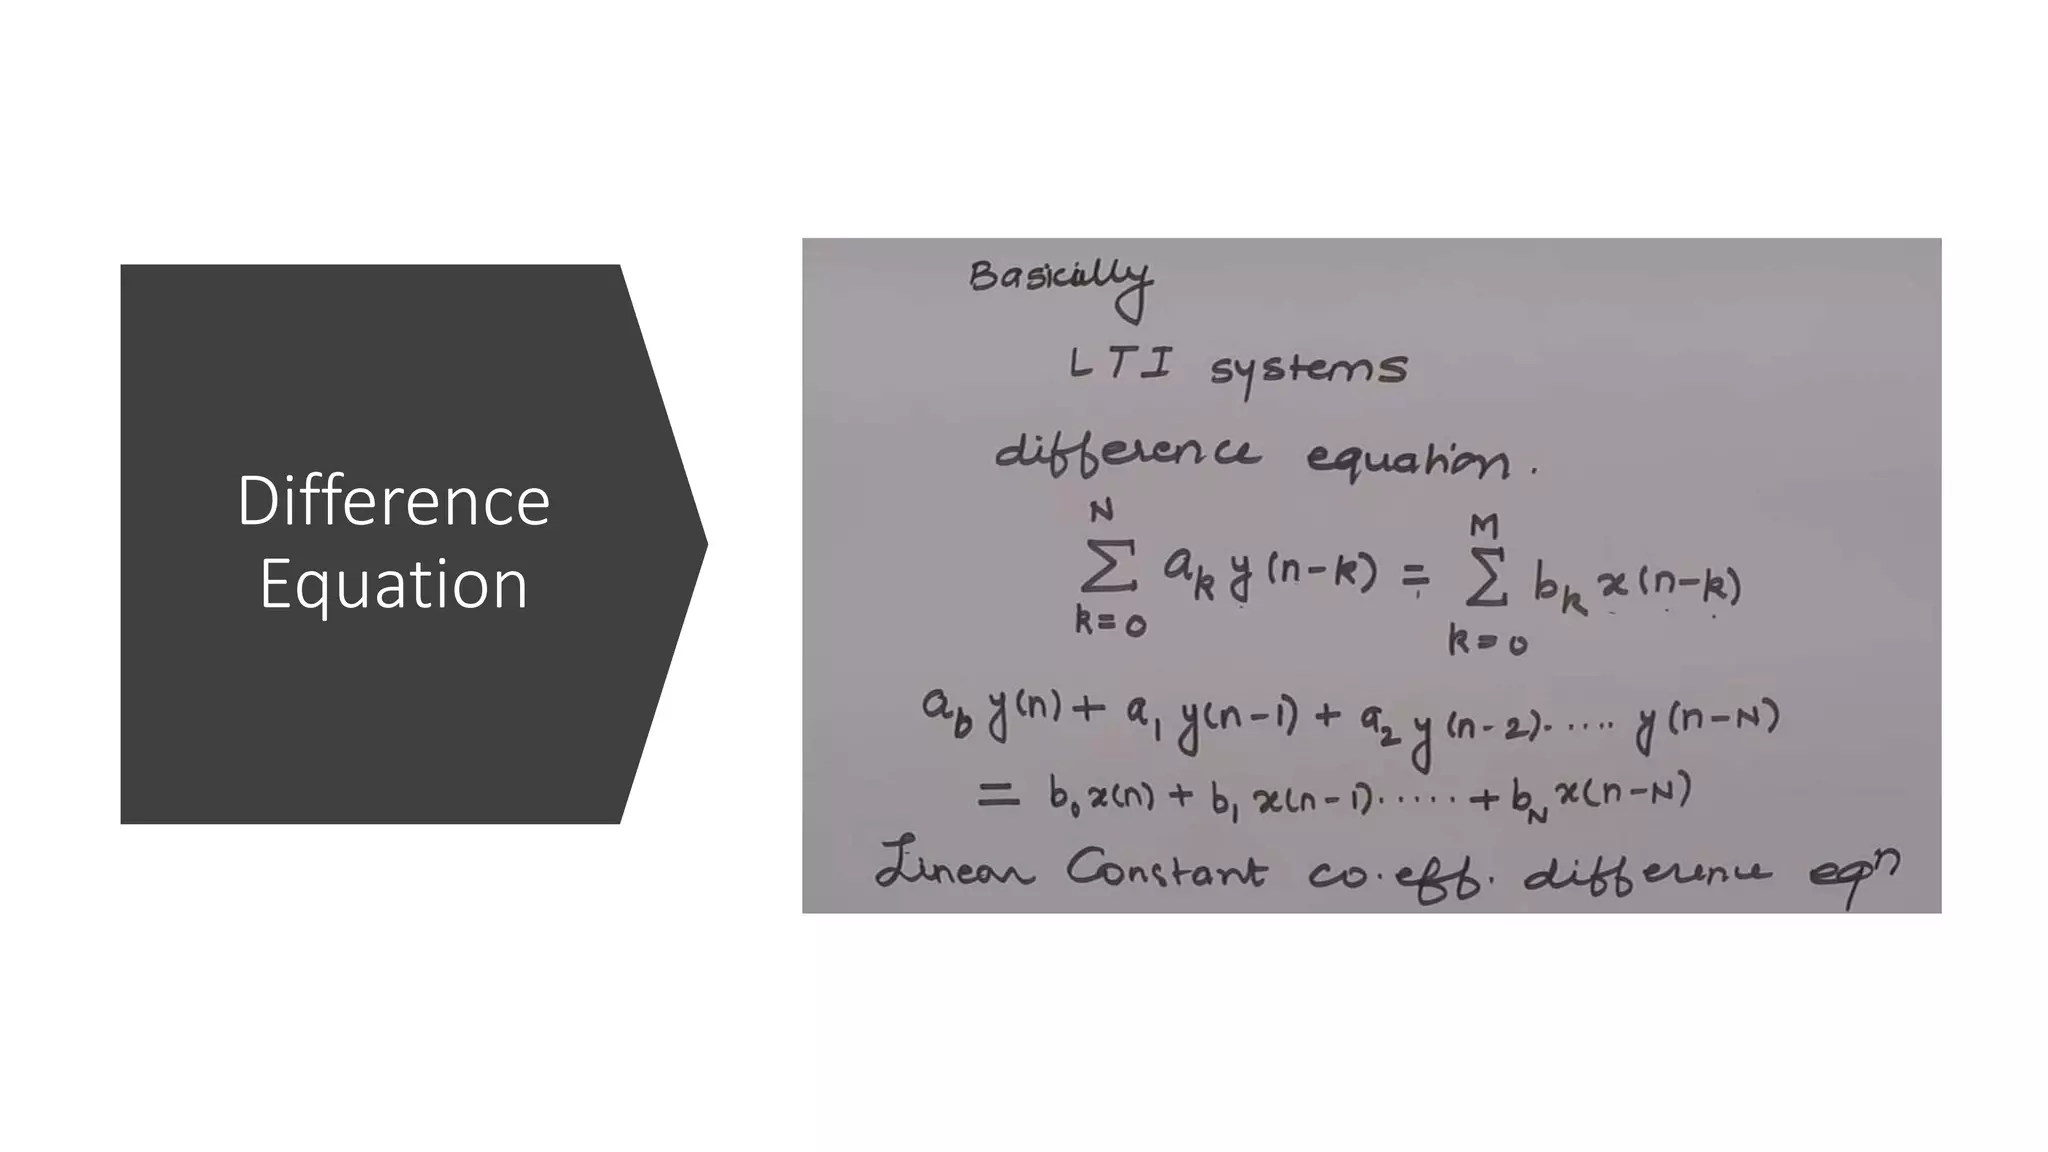 Difference
Equation
Basically
LTI systems
difference equation.
N M
∑ aₖ y(n-k) = ∑ bₖ x(n-k)
k=0 k=0
a₀ y(n) + a₁ y(n-1) + a₂ y(n-2)..... y(n-N)
= b₀ x(n) + b₁ x(n-1)...... + b_N x(n-N)
Linear Constant co.eff. difference eqⁿ